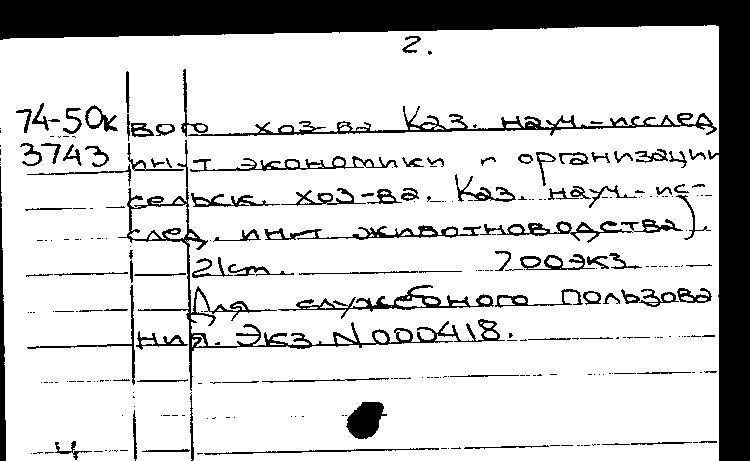 2.
74-50к вого хоз-ва Каз. науч.-исслед
3743 ин-т экономики и организации
сельск. хоз-ва. Каз. науч.-ис-
след. ин-т животноводства).
21 ст. 700 экз
Для служебного пользова
ния. Экз. N 000418.
Ч